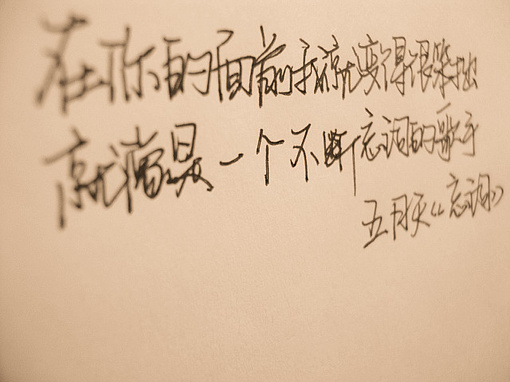 在你的面前我就变得很笨拙
就像是一个不断忘词的歌手
五月天《忘词》